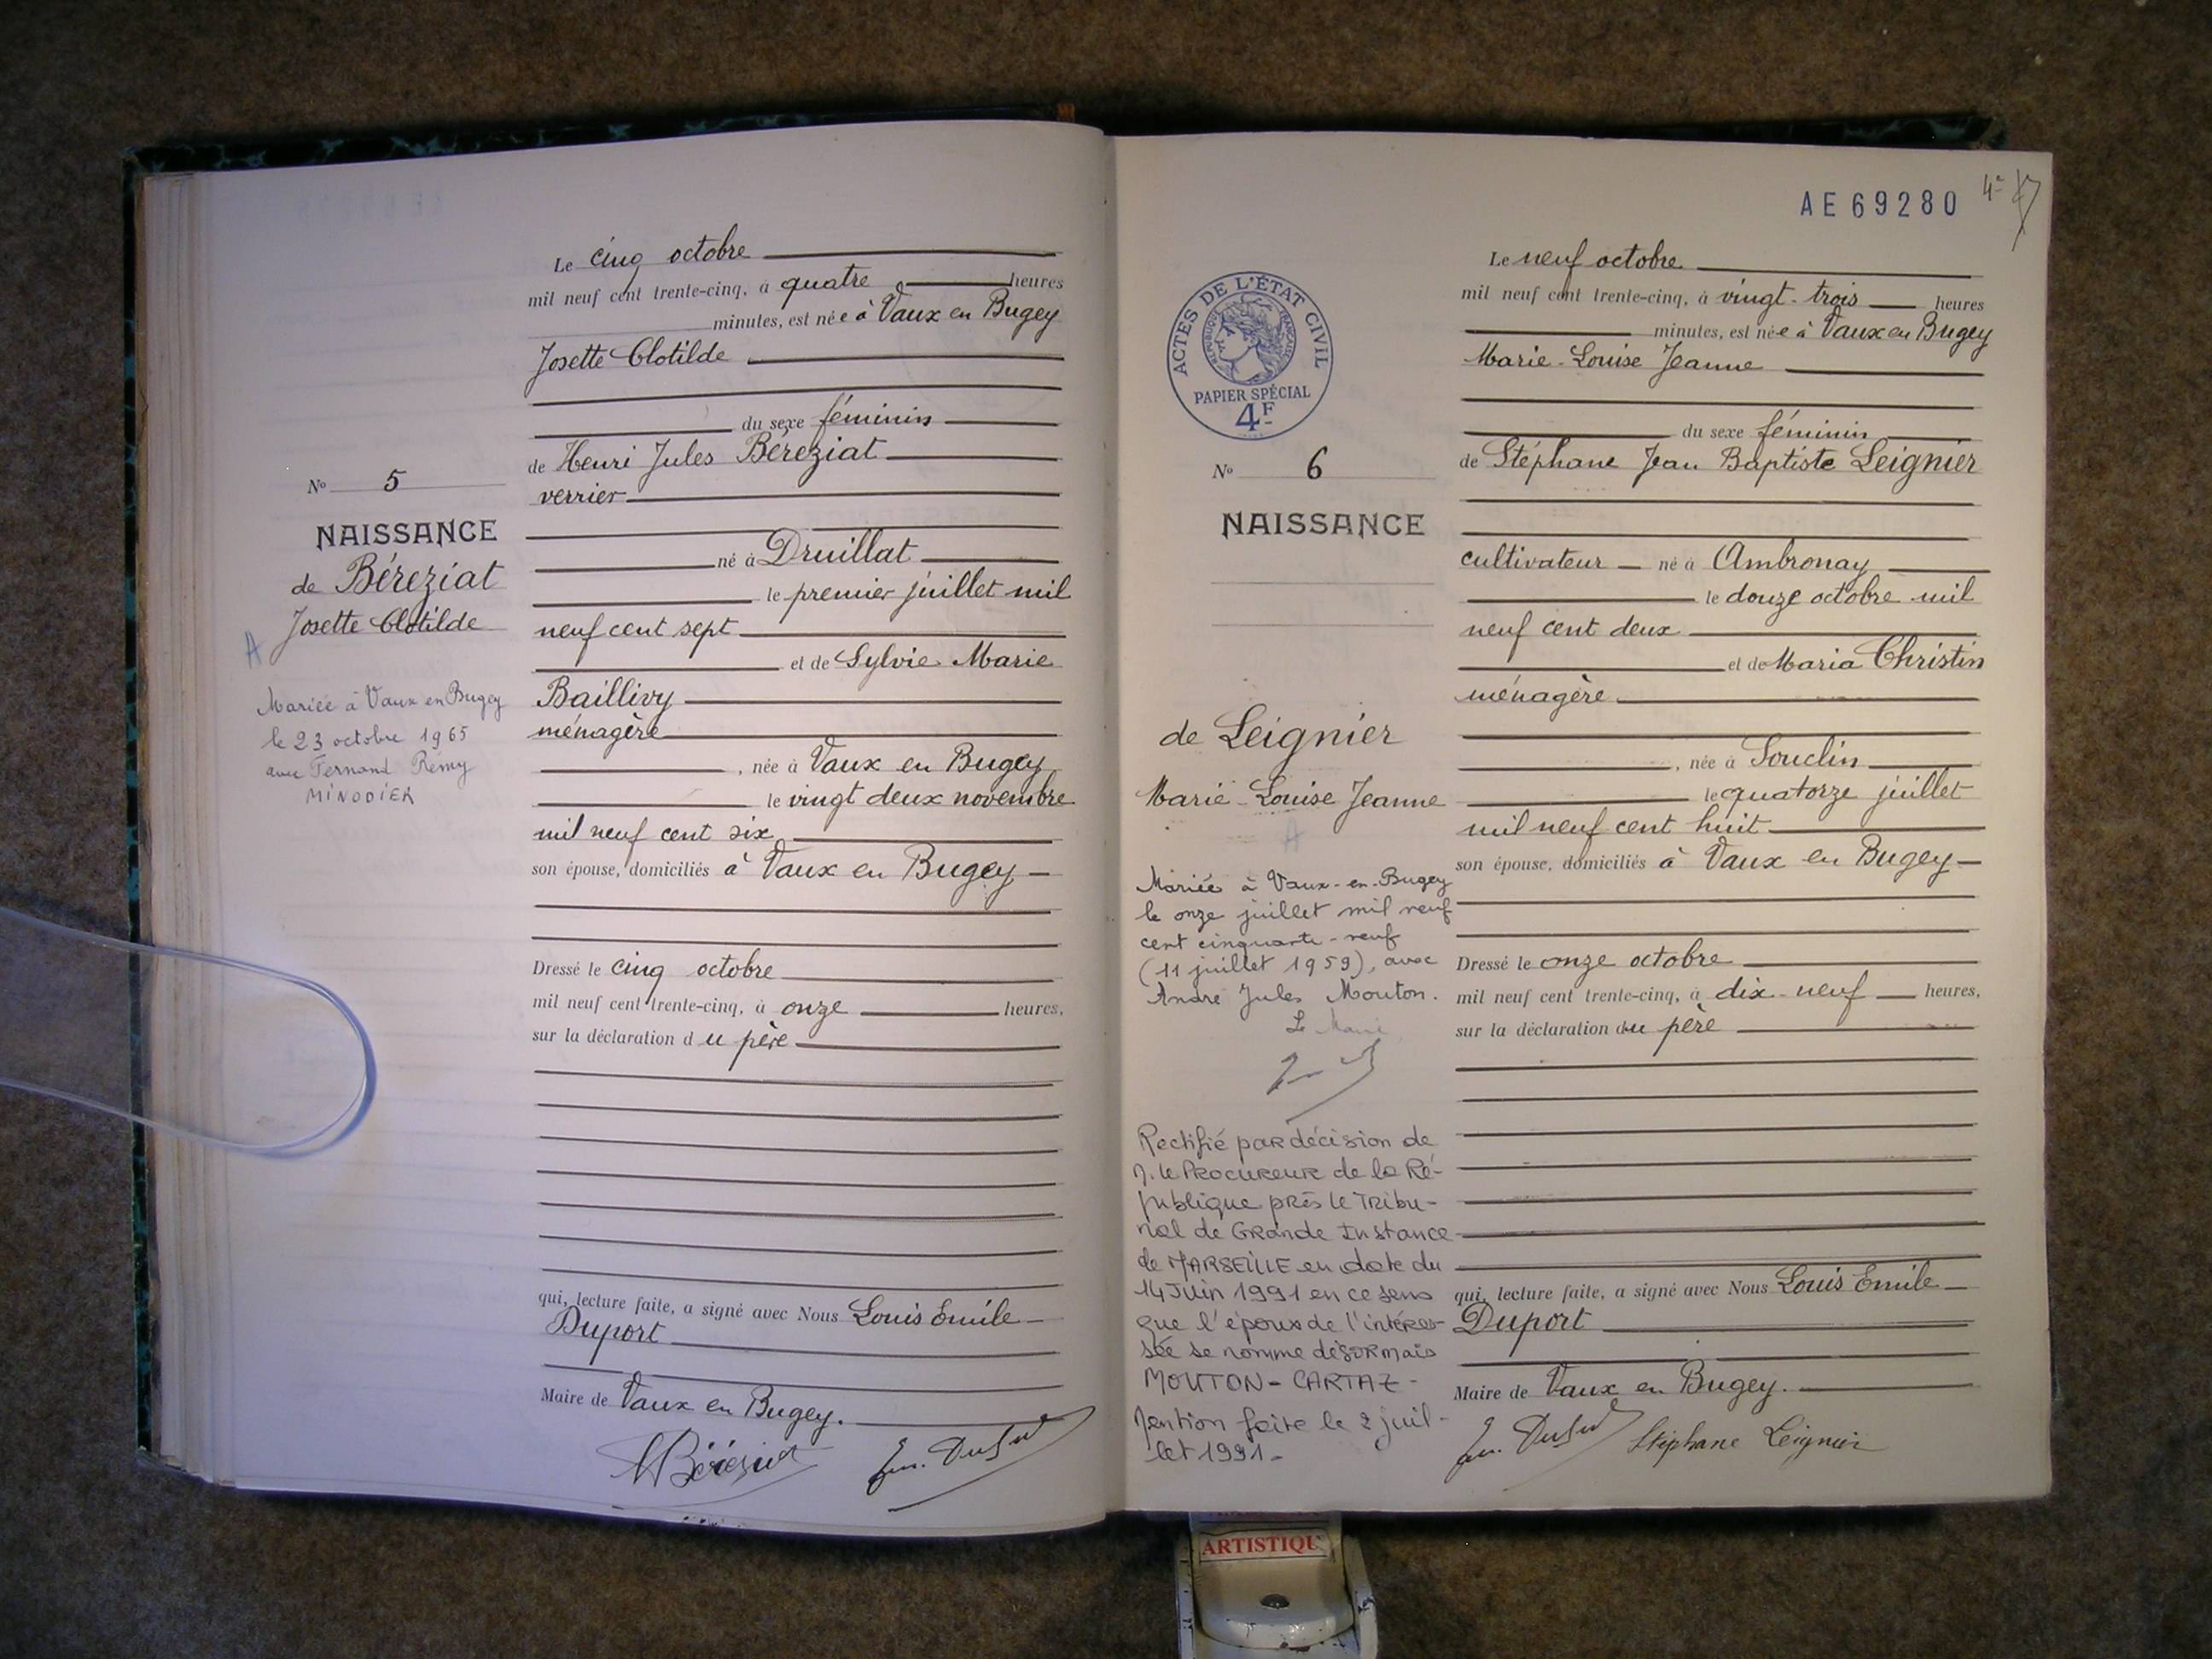 Le cinq octobre
mil neuf cent trente-cinq, à quatre heures
minutes, est née à Vaux en Bugey
Josette Clotilde
du sexe féminin
de Henri Jules Béreziat
verrier
né à Druillat
le premier juillet mil
neuf cent sept
et de Sylvie Marie
Baillivy
ménagère
, née à Vaux en Bugey
le vingt deux novembre
mil neuf cent six
son épouse, domiciliés à Vaux en Bugey
Dressé le cinq octobre
mil neuf cent trente-cinq, à onze heures,
sur la déclaration du père
qui, lecture faite, a signé avec Nous Louis Emile
Duport
Maire de Vaux en Bugey.
No 5
NAISSANCE
de Béreziat
Josette Clotilde
A
Mariée à Vaux en Bugey
le 23 octobre 1965
avec Fernand Rémy
MINODIER
AE69280
ACTES DE L'ÉTAT CIVIL
RÉPUBLIQUE FRANÇAISE
PAPIER SPÉCIAL
4F
No 6
NAISSANCE
de Leignier
Marie-Louise Jeanne
A
Mariée à Vaux-en-Bugey
le onze juillet mil neuf
cent cinquante-neuf
(11 juillet 1959), avec
André Jules Mouton.
Le Maire
Rectifié par décision de
M. le Procureur de la Ré-
publique près le Tribu-
nal de Grande Instance
de MARSEILLE en date du
14 Juin 1991 en ce sens
que l'époux de l'intéres-
sée se nomme désormais
MOUTON-CARTAZ-
Mention faite le 2 juil-
let 1991-
Le neuf octobre
mil neuf cent trente-cinq, à vingt-trois heures
minutes, est née à Vaux en Bugey
Marie-Louise Jeanne
du sexe féminin
de Stéphane Jean Baptiste Leignier
cultivateur né à Ambronay
le douze octobre mil
neuf cent deux
et de Maria Christin
ménagère
, née à Souclin
le quatorze juillet
mil neuf cent huit
son épouse, domiciliés à Vaux en Bugey
Dressé le onze octobre
mil neuf cent trente-cinq, à dix-neuf heures,
sur la déclaration du père
qui, lecture faite, a signé avec Nous Louis Emile
Duport
Maire de Vaux en Bugey.
Stéphane Leignier
ARTISTIQU